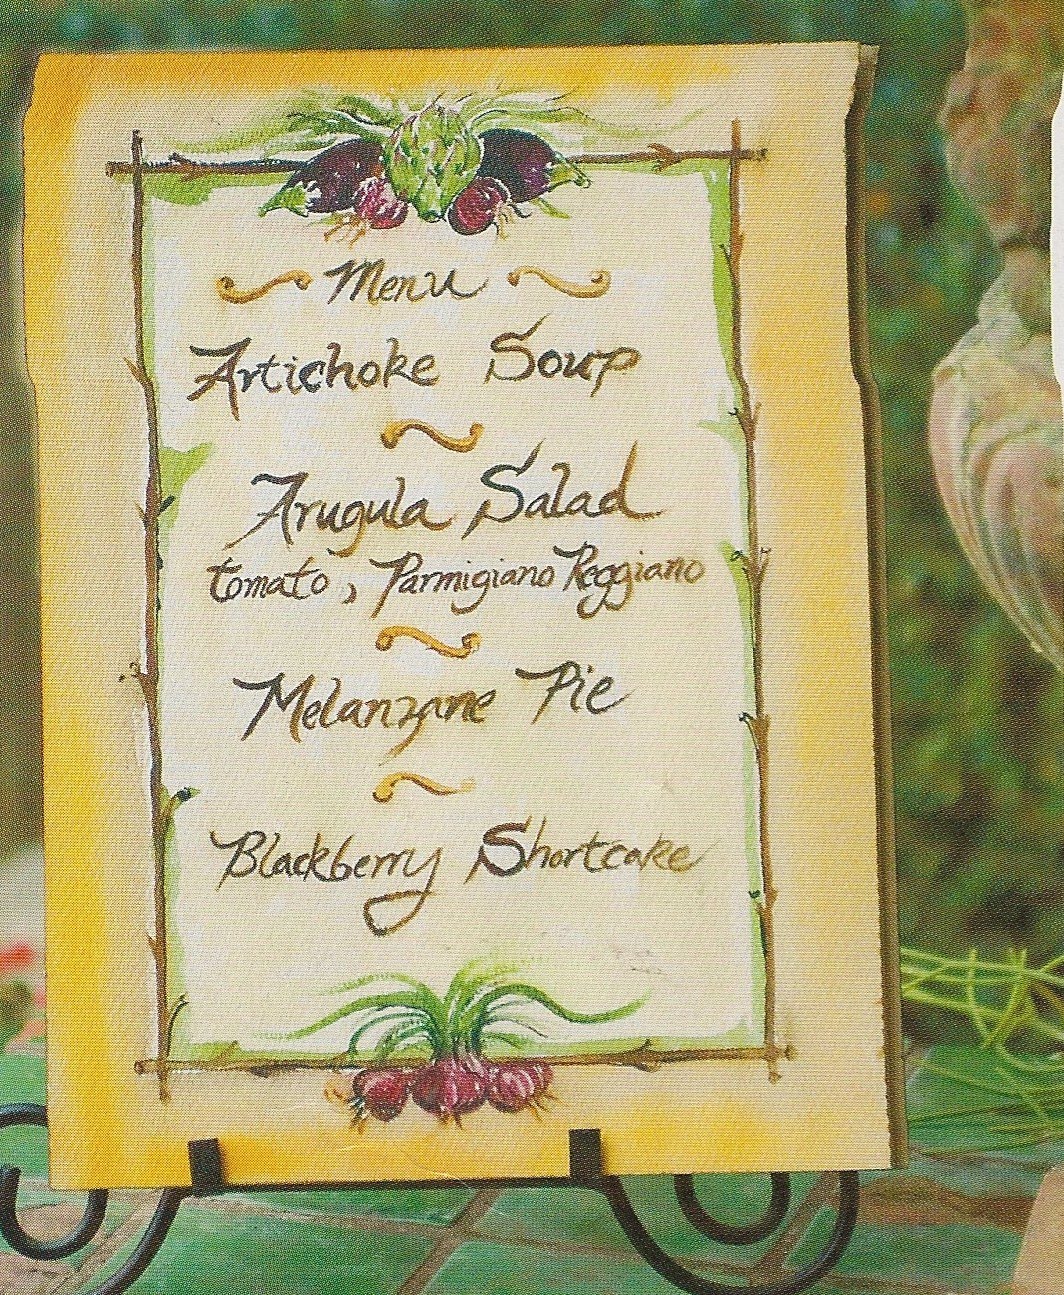 Menu
Artichoke Soup
Arugula Salad
tomato, Parmigiano Reggiano
Melanzane Pie
Blackberry Shortcake